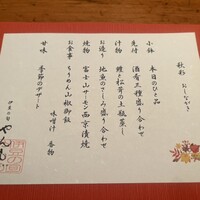 秋彩 おしながき
小鉢 本日のひと品
先付 酒肴三種盛り合わせ
汁物 鱧と松茸の土瓶蒸し
お造り 地魚のさしみ盛り合わせ
焼物 富士山サーモン西京漬焼
お食事 ちりめん山椒御飯
味噌汁 香物
甘味 季節のデザート